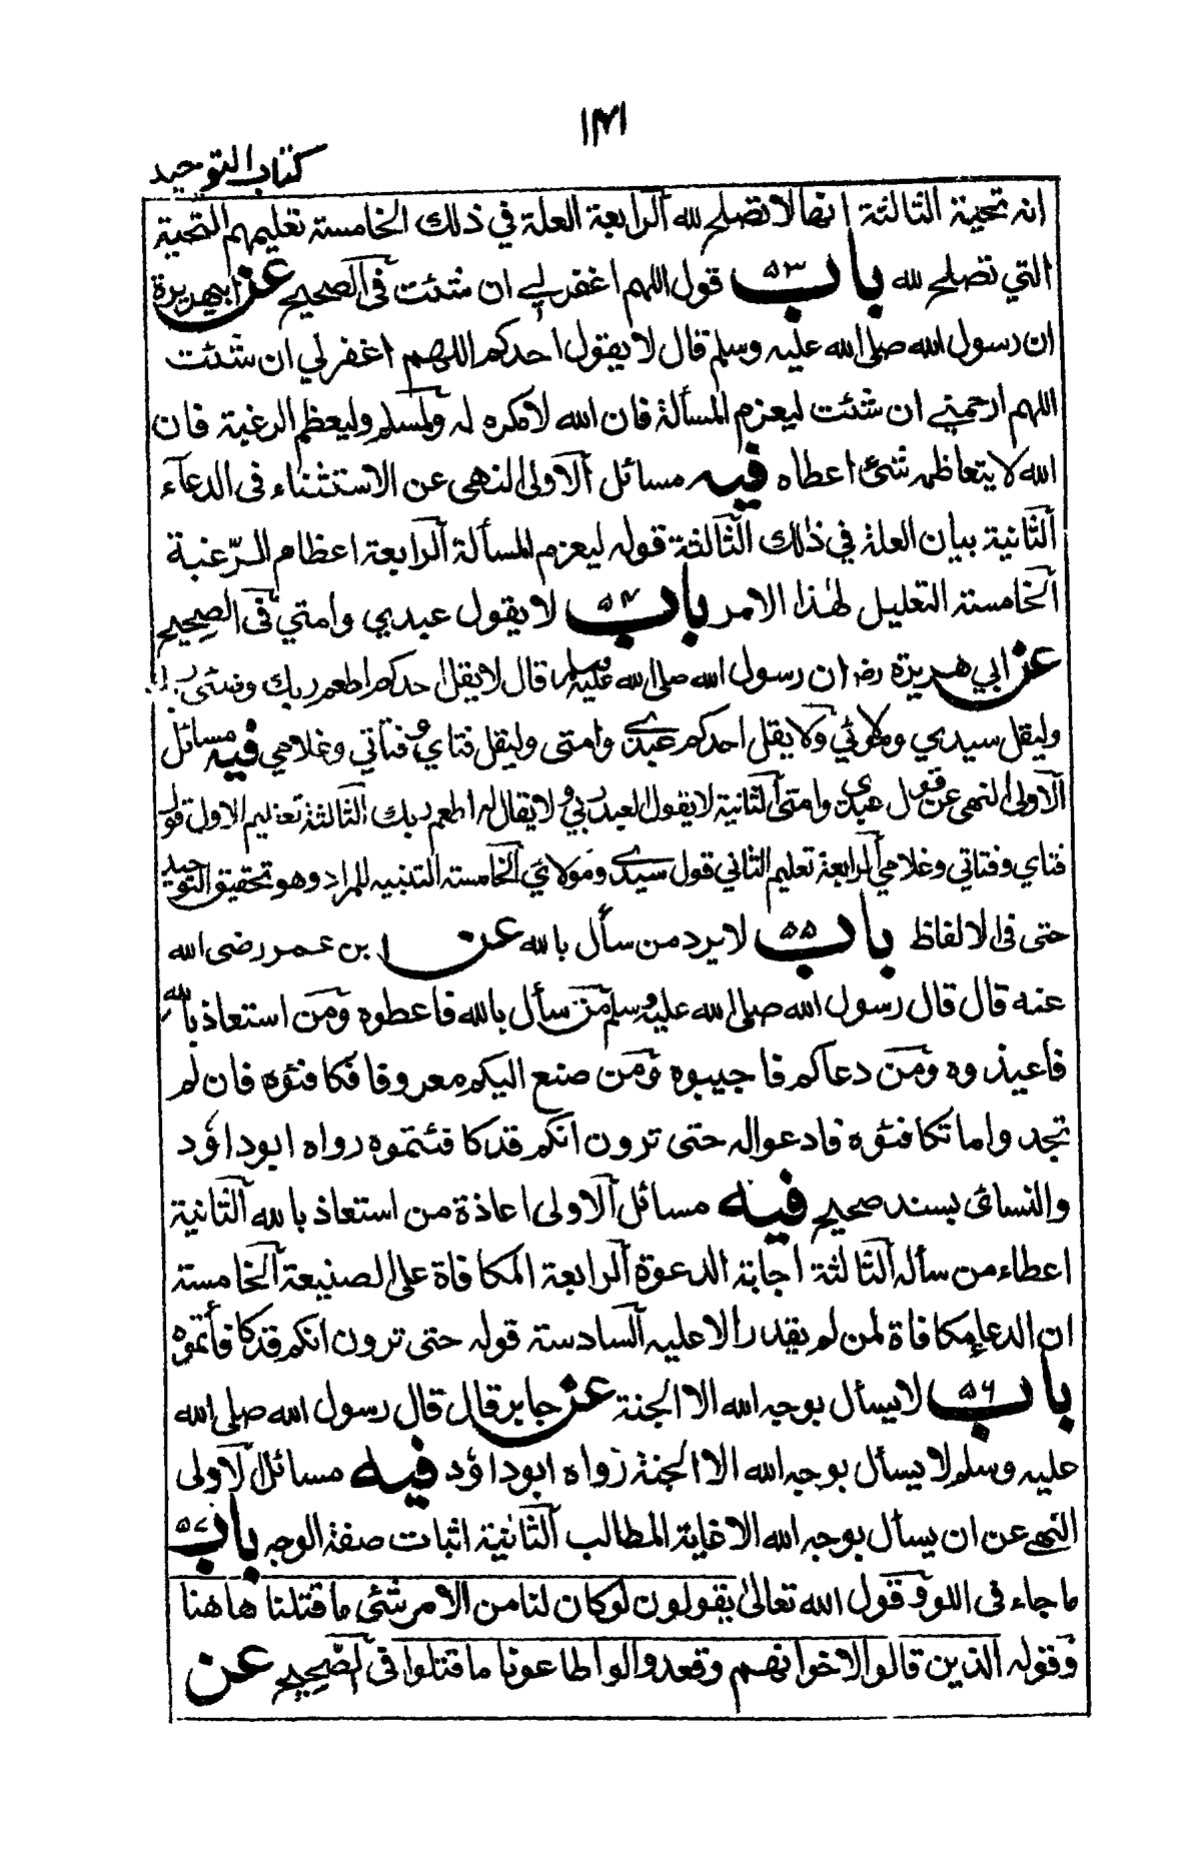 ۱۴۱
كتاب التوحيد
انه تحية الثالثة انها لا تصلح لله الرابعة العلة في ذلك الخامسة تعليمهم التحية
التي تصلح لله باب ۵۳ قول اللهم اغفر لي ان شئت فى الصحيح عن ابيهريرة
ان رسول الله صلى الله عليه وسلم قال لا يقول احدكم اللهم اغفر لي ان شئت
اللهم ارحمني ان شئت ليعزم المسألة فان الله لا مكره له ولمسلم وليعظم الرغبة فان
الله لا يتعاظمه شئ اعطاه فيه مسائل الاولى النهى عن الاستثناء فى الدعآء
الثانية بيان العلة في ذلك الثالثة قوله ليعزم المسألة الرابعة اعظام الرّغبة
الخامسة التعليل لهذا الامر باب ۵۴ لا يقول عبدي وامتي فى الصحيح
عن ابي هريرة رضـ ان رسول الله صلى الله عليه وسلم قال لا يقل احدكم اطعم ربك وضئ ربك
وليقل سيدي ومولائي ولا يقل احدكم عبدي وامتى وليقل فتاي وفتاتي وغلامي فيه مسائل
الاولى النهى عن قول عبدي وامتى الثانية لا يقول العبد ربي ولا يقال له اطعم ربك الثالثة تعليم الاول قول
فتاي وفتاتي وغلامي الرابعة تعليم الثاني قول سيدي ومولائي الخامسة التنبيه للمراد وهو تحقيق التوحيد
حتى فى الالفاظ باب ۵۵ لا يرد من سأل بالله عن ابن عمر رضى الله
عنه قال قال رسول الله صلى الله عليه وسلم من سأل بالله فاعطوه ومن استعاذ بالله
فاعيذوه ومن دعاكم فاجيبوه ومن صنع اليكم معروفا فكافئوه فان لم
تجدوا ما تكافئوه فادعوا له حتى ترون انكم قد كافئتموه رواه ابوداؤد
والنسائى بسند صحيح فيه مسائل الاولى اعاذة من استعاذ بالله الثانية
اعطاء من سأله الثالثة اجابة الدعوة الرابعة المكافاة على الصنيعة الخامسة
ان الدعاء مكافاة لمن لم يقدر الا عليه السادسة قوله حتى ترون انكم قد كافأتموه
باب ۵۶ لا يسأل بوجه الله الا الجنة عن جابر قال قال رسول الله صلى الله
عليه وسلم لا يسأل بوجه الله الا الجنة رواه ابوداؤد فيه مسائل الاولى
النهي عن ان يسأل بوجه الله الا غاية المطالب الثانية اثبات صفة الوجه باب ۵۷
ما جاء فى اللو وقول الله تعالى يقولون لو كان لنا من الامر شئى ما قتلنا هاهنا
وقوله الذين قالوا لاخوانهم وقعدوا لو اطاعونا ما قتلوا فى الصّحيح عن